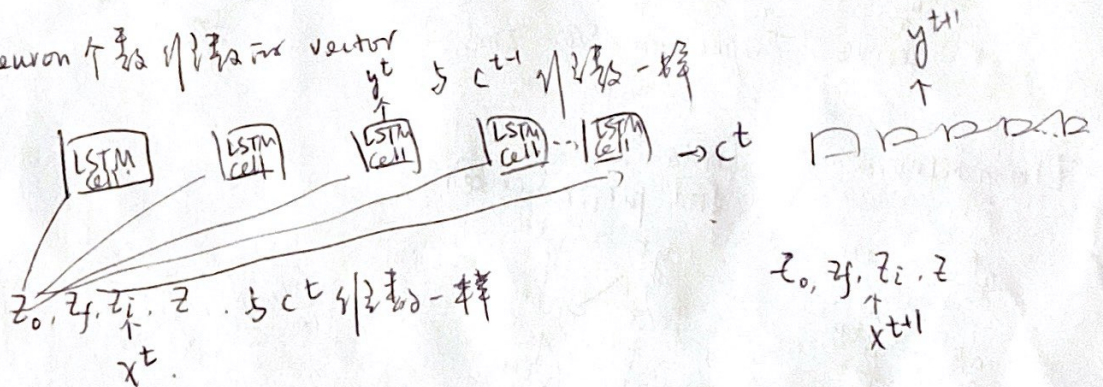 euron 个数维数的 vector
y^t 与 c^{t-1} 维数一样
y^{t+1}
LSTM cell LSTM cell LSTM cell LSTM cell ... LSTM cell → c^t
z_o, z_f, z_i, z. 与 c^t 维数一样
z_o, z_f, z_i, z
x^t.
x^{t+1}